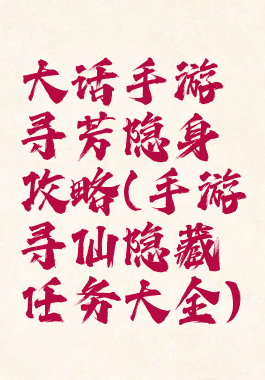 大话手游
寻芳隐身
攻略(手游
寻仙隐藏
任务大全)